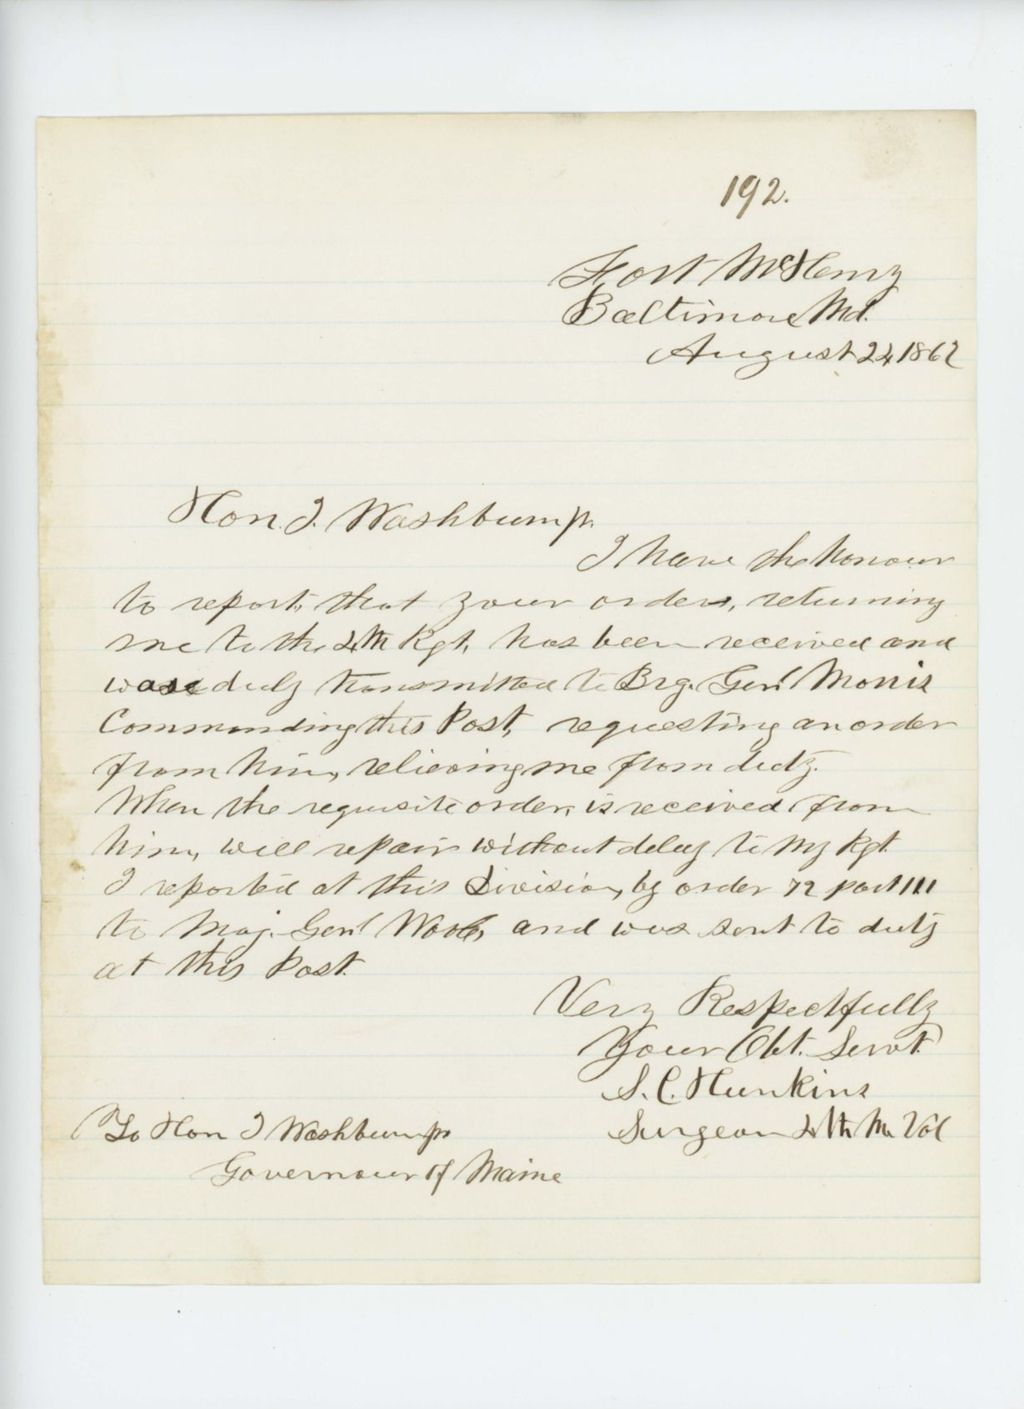 192.
Fort McHenry
Baltimore Md.
August 24, 1862
Hon. I. Washburn jr.
I have the honour
to report, that your orders, returning
me to the 4th Rgt, has been received and
was duly transmitted to Brg. Genl Morris
Commanding this Post, requesting an order
from him, relieving me from duty.
When the requisite order, is received from
him, will repair without delay to My Rgt.
I reported at this Division, by order 72 part III
to Maj. Genl Wool, and was sent to duty
at this Post.
Very Respectfully
Your Obt. Servt.
S. C. Hunkins
Surgeon 4th Me Vol
To Hon I Washburn jr
Governour of Maine